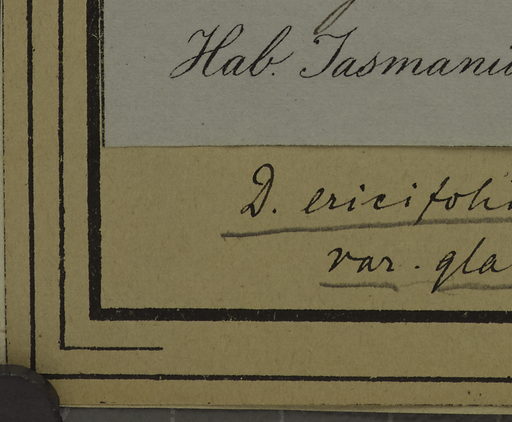 Hab. Tasmani
D. ericifoli
var. gla